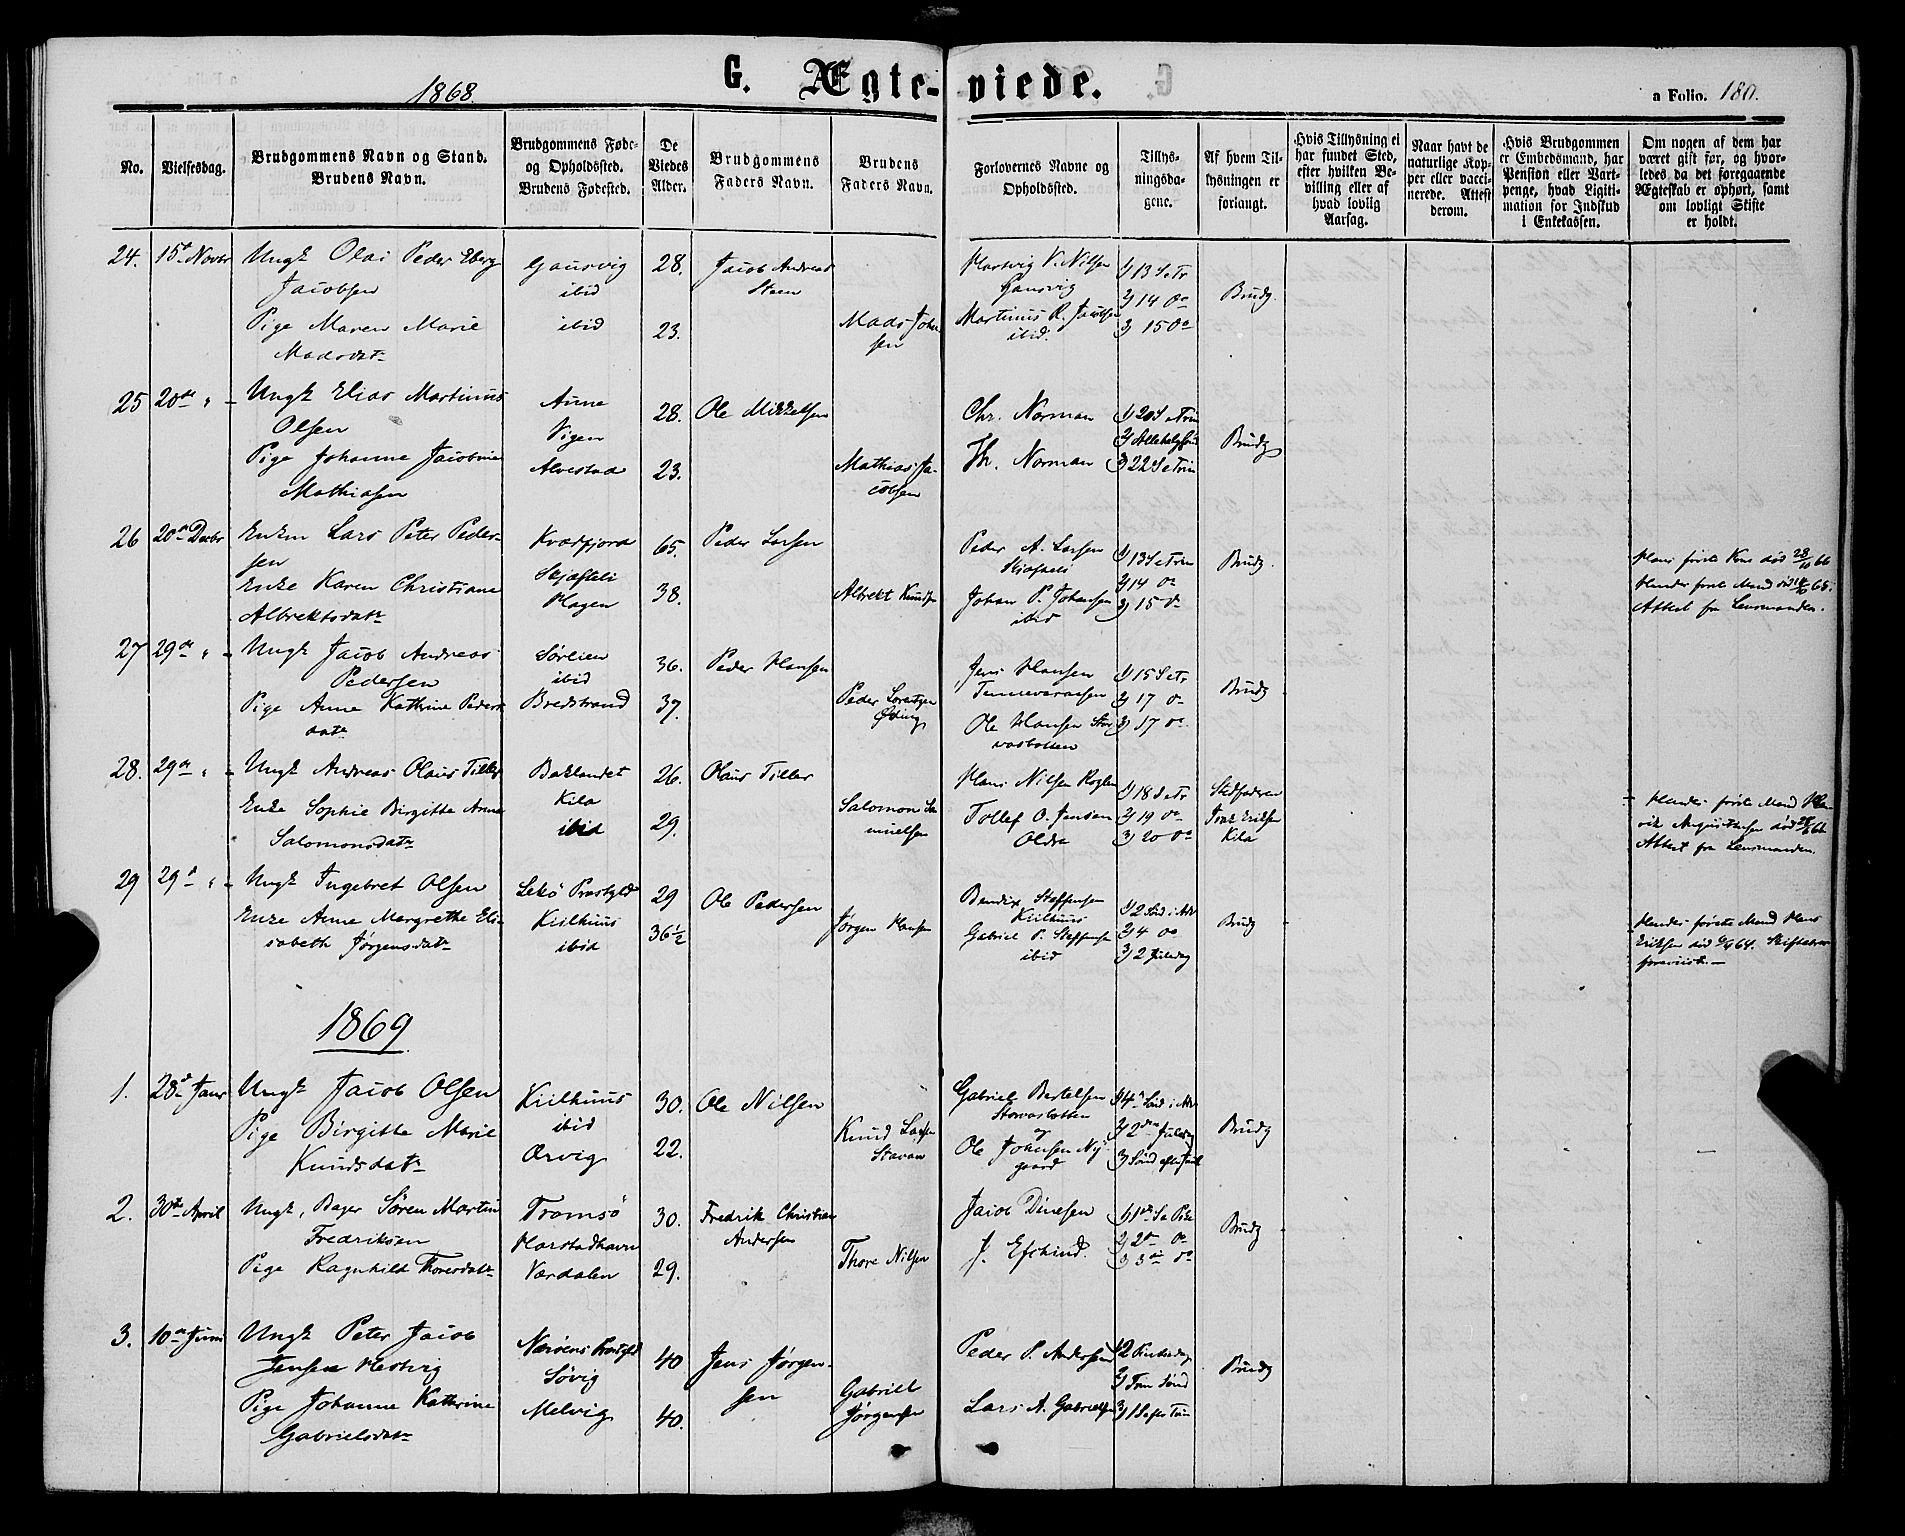 1868.
G. Ægte-viede.
a Folio. 180.
No.
Vielsesdag.
Brudgommens Navn og Stand.
Brudens Navn.
Brudgommens Føde-
og Opholdssted.
Brudens Fødested.
De
Viedes
Alder.
Brudgommens
Faders Navn.
Brudens
Faders Navn.
Forlovernes Navne og
Opholdssted.
Tillys-
ningsda-
gene.
Af hvem Til-
lysningen er
forlangt.
Hvis Tillysning ei
har fundet Sted,
efter hvilken Be-
villing eller af
hvad lovlig
Aarsag.
Naar havt de
naturlige Kop-
per eller vacci-
nerede. Attest
derom.
Hvis Brudgommen
er Embedsmand, har
Pension eller Vart-
penge, hvad Ligiti-
mation for Indskud
i Enkekassen.
Om nogen af dem har
været gift før, og hvor-
ledes da det foregaaende
Ægteskab er ophørt, samt
om lovligt Skifte
er holdt.
24. 15d Novbr Ungk Olai Peder Eberg
Jacobsen
Pige Maren Marie
Madsdatr
Gausvig
ibid
ibid
28.
23.
Jacob Andreas
Steen
Mads Johan
sen
Hartvig V. Nilsen
Gausvig
Martinus R. Jacobsen
ibid.
1) 13 S e Tr
2) 14 Do
3) 15 Do
Brudg.
25 20de " - Ungk Elias Martinus
Olsen
Pige Johanne Jacobine
Mathiasen
Aune
Vigen
Alvestad
28.
23.
Ole Mikkelsen
Mathias Ja-
cobsen
Chr. Norman
Th. Norman
1) 20 S e Trin
3) 22 S e Trin
Brudg
26 20de Decbr Enkm Lars Peter Peder-
sen
Enke Karen Christiane
Albrektsdatr
Kvædfjord
Skjæfteli
Hagen
65.
38.
Peder Larsen
Albrekt Knudsen
Peder A. Larsen
Skjæfteli
Johan P. Johansen
ibid
1) 13 S e Trin
2) 14 Do
3) 15 Do
Brudg.
Hans første Kone død 28/10 66
Hendes første Mand død 65.
Attest fra Lensmanden.
27 29de " - Ungk Jacob Andreas
Pedersen
Pige Anne Kathrine Peders
datr
Sørlien
ibid
Bredstrand
36.
37.
Peder Hansen
Peder Lorentzen
Øding
Jens Hansen
Tennevarasen
Ole Hansen Stor
vasbotten
1) 15 S e Tr
2) 17 Do
3) 17 Do.
Brudg
28. 29de " - Ungk Andreas Olaus Tiller
Enke Sophie Birgitte Anna
Salomonsdatr
Baklandet
Kila
ibid
26.
29.
Olaus Tiller
Salomon Sa-
muelsen
Hans Nilsen Roglen
Tollef O. Jensen
Oldra
1) 18 S e Tr
2) 19 Do
3) 20 Do
Stedfaderen
Isak Eriksen
Kila
- Hendes første Mand Hen
rik Augustinsen død 66
Attest fra Lensmanden.
29 29d " - Ungk Ingebret Olsen
Enke Anne Margrethe Eli-
sabeth Jørgensdatr
Lekø Præstgld
Kiilhuus
ibid
29
36 1/2
Ole Pedersen
Jørgen Hansen
Bendix Steffensen
Kiilhuus
Gabriel P. Steffensen
ibid
1) 2 Sønd i Adv
2) 4 Do
3) 2 Juledag
Brudg
Hendes første Mand Hans
Eriksen død 64. Skiftebrev
foreviist. -
1869
1. 28d Janr Ungk Jacob Olsen
Pige Birgitte Marie
Knudsdatr
Kiilhuus
ibid
Ørvig
30.
22.
Ole Nilsen
Knud Larsen
Stavan
Gabriel Bertelsen
Storvasbotten
og
Ole Johansen Ny-
gaard
1) 4de Sønd i Adv
2) 2den Juledag
3) Sønd efter Juul
Brudg
2. 30te April Ungk, Bager Søren Martin
Fredriksen
Pige Ragnhild Thoresdatr
Tromsø
Harstadhavn
Værdalen
30.
29.
Fredrik Christian
Andersen
Thore Nilsen
Jacob Dinesen
J. Efskind.
2) 2d Do
3) 3die Do
Brudg
3. 10de Juni Ungk Peter Jacob
Jensen Hestvig
Pige Johanne Kathrine
Gabrielsdatr
Nærøens Præstgld
Søvig
Melvig
40
40.
Jens Jørgen-
sen
Gabriel
Jørgensen
Peder P. Andersen
Lars A. Gabrielsen
1) 2 Pintsedag
2) Trin Sønd
3) 1 S efter Trin
Brudg